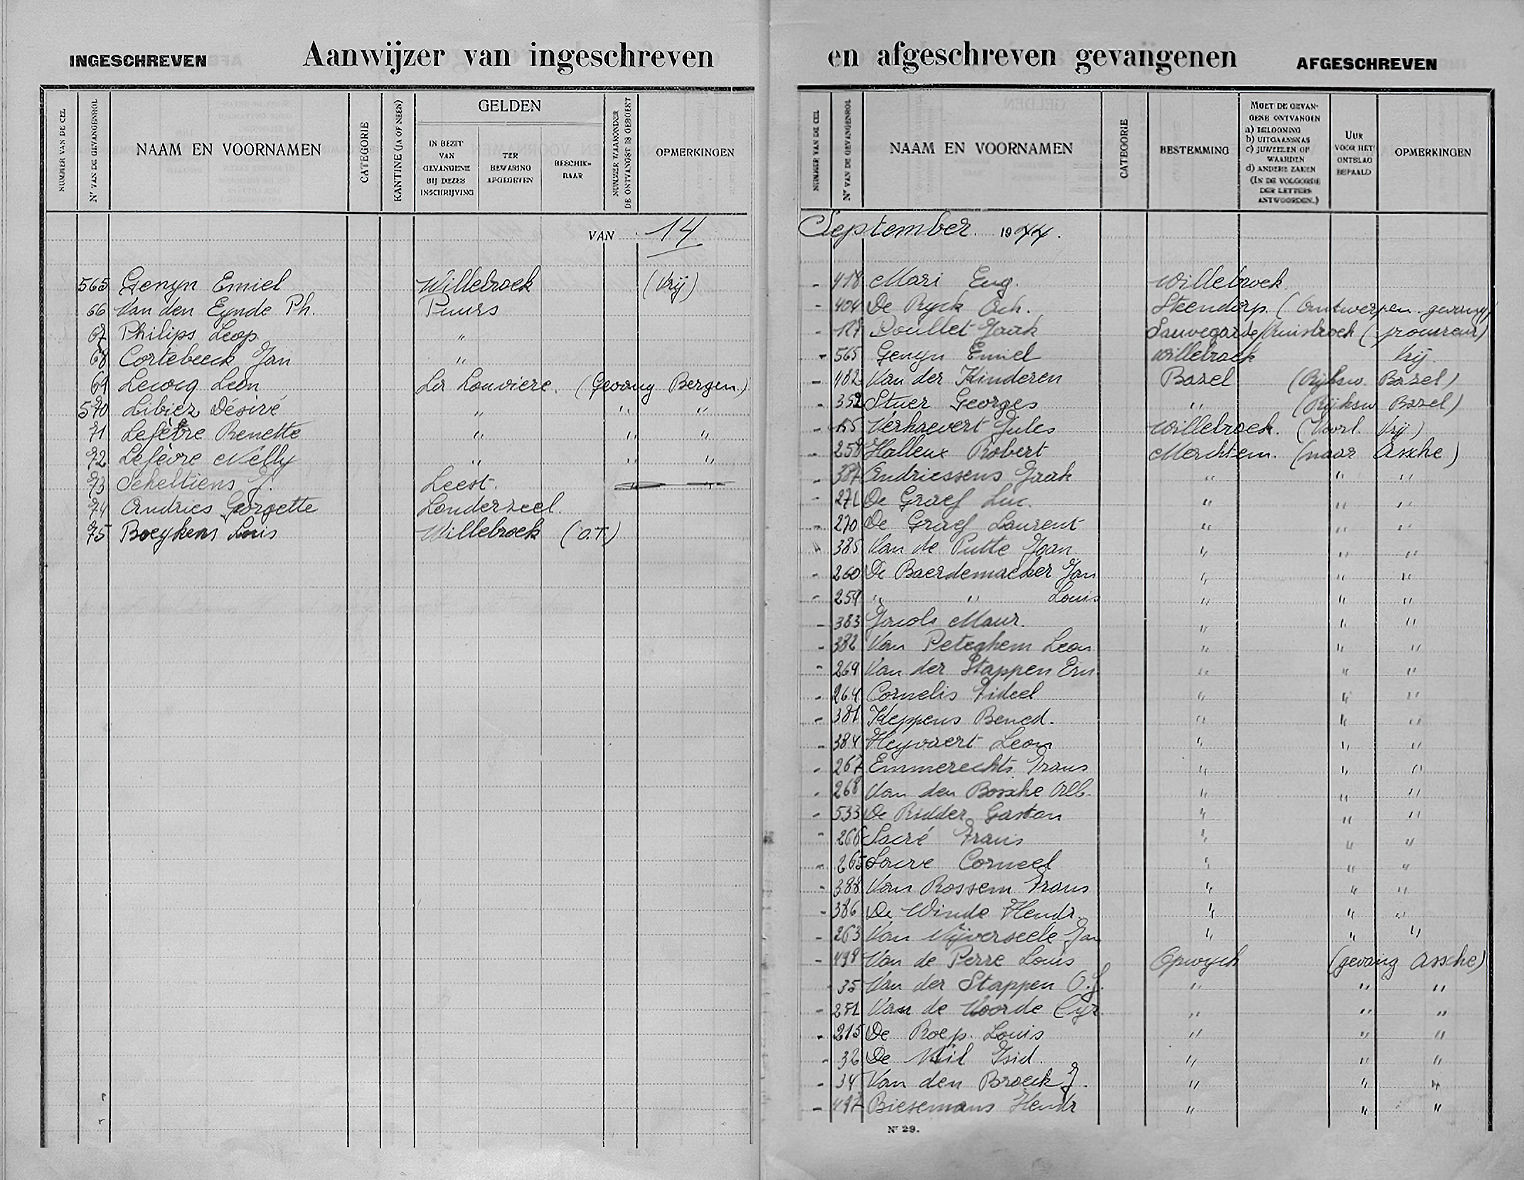 INGESCHREVEN Aanwijzer van ingeschreven en afgeschreven gevangenen AFGESCHREVEN
NUMMER VAN DE CEL
Nr VAN DE GEVANGENROL
NAAM EN VOORNAMEN
CATEGORIE
KANTINE (JA OF NEEN)
GELDEN
IN BEZIT VAN GEVANGENE BIJ DEZES INSCHRIJVING
TER BEWARING AFGEGEVEN
BESCHIKBAAR
NUMMER WAARONDER DE ONTVANGST IS GEBOEKT
OPMERKINGEN
VAN 14
565 Genyn Emiel Willebroek (Vrij)
66 Van den Eynde Ph. Puurs
67 Philips Leop. "
68 Cortebeeck Jan "
69 Lecocq Leon La Louviere. (Gevang Bergen.)
570 Libiez Désiré " " "
71 Lefèvre Renette " " "
72 Lefèvre Nelly " " "
73 Scheltiens J. Leest.
74 Andries Georgette Londerzeel.
75 Boeykens Louis Willebroek (O.T.)
NUMMER VAN DE CEL
Nr VAN DE GEVANGENROL
NAAM EN VOORNAMEN
CATEGORIE
BESTEMMING
MOET DE GEVANGENE ONTVANGEN
a) BELOONING
b) UITGAANSKAS
c) JUWEELEN OF WAARDEN
d) ANDERE ZAKEN
(IN DE VOLGORDE DER LETTERS ANTWOORDEN.)
UUR VOOR HET ONTSLAG BEPAALD
OPMERKINGEN
September 1944.
- 418 Mari Eug. Willebroek
- 404 De Pryck Och. Steendorp. (Antwerpen. gevang)
- 127 Poullet Jaak Sauvegarde/Ruisbroek (procureur)
- 565 Genyn Emiel Willebroek Vrij
- 482 Van der Kinderen Bazel (Rijksw. Bazel)
- 352 Stuer Georges " (Rijksw Bazel)
- 155 Verhaevert Jules Willebroek. (Voorl. Vrij.)
- 258 Halleux Robert Merchtem. (naar Assche)
- 387 Andriessens Jaak " " "
- 271 De Graef Luc. " " "
- 270 De Graef Laurent " " "
" 385 Van de Putte Jean " " "
- 260 De Baerdemaeker Jan " " "
- 259 " " Louis " " "
- 383 Jacobs Maur. " " "
- 382 Van Peteghem Leon " " "
- 269 Van der Stappen Em. " " "
- 264 Cornelis Fideel " " "
- 381 Keppens Bened. " " "
- 384 Heyvaert Leon " " "
- 267 Emmerechts Frans " " "
- 268 Van den Bossche Alb. " " "
- 533 De Ridder Gaston " " "
- 266 Sacré Frans " " "
- 265 Sacré Corneel " " "
- 388 Van Rossem Frans " " "
- 386 De Winde Hendr. " " "
- 263 Van Nijverseele Jan " " "
- 498 Van de Perre Louis Opwyck (gevang Assche)
- 35 Van der Stappen O.J. " " "
- 251 Van de Voorde Cyr " " "
- 215 De Roep. Louis " " "
- 32 De Wit Isid. " " "
- 34 Van den Broeck J. " " "
- 497 Biesemans Hendr " " "
Nr 29.